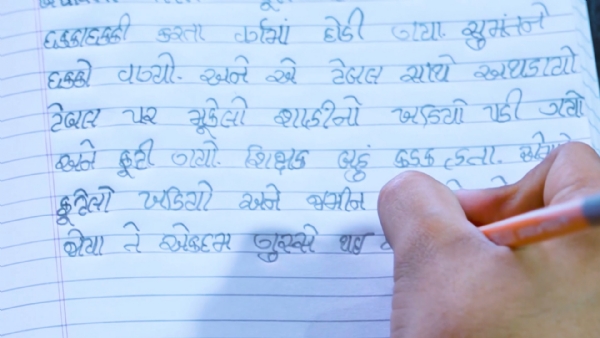 ધક્કાધક્કી કરતા વર્ગમાં દોડી ગયા. સુમંતને
ધક્કો વાગ્યો. અને એ ટેબલ સાથે અથડાયો
ટેબલ પર મૂકેલો શાહીનો ખડિયો પડી ગયો
અને ફૂટી ગયો. શિક્ષક બહું કડક હતા.
ફૂટેલો ખડિયો અને જમીન
જોયા તે એકદમ ગુસ્સે થઇ